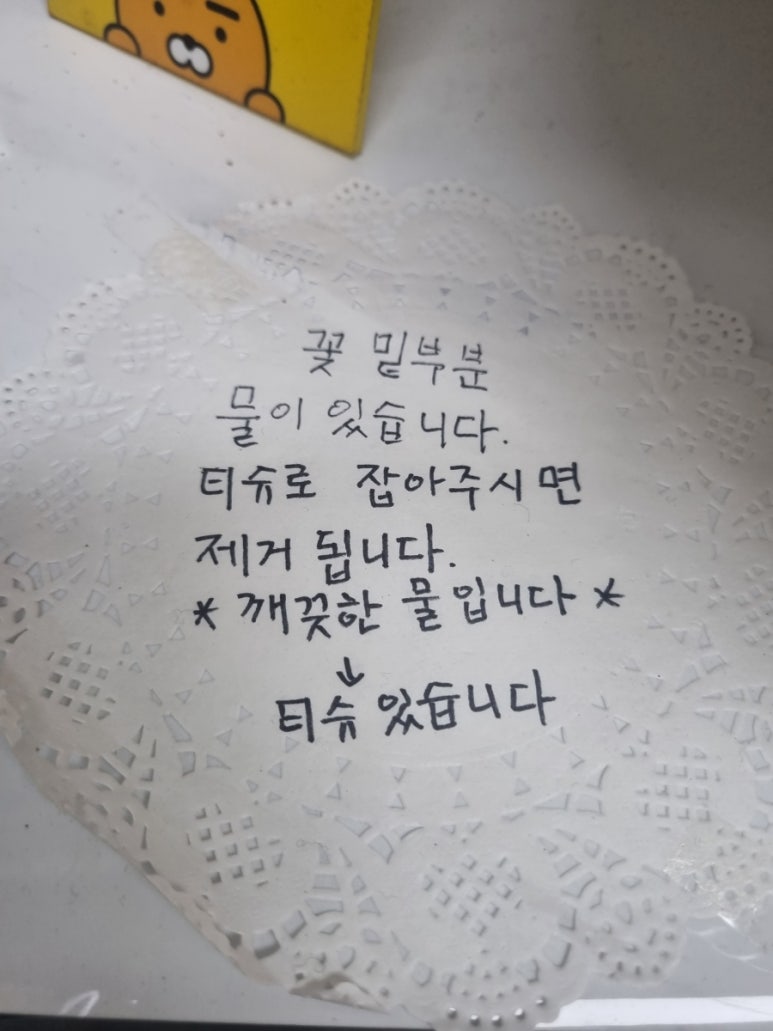 꽃 밑부분
물이 있습니다.
티슈로 잡아주시면
제거 됩니다.
* 깨끗한 물입니다 *
↓
티슈 있습니다